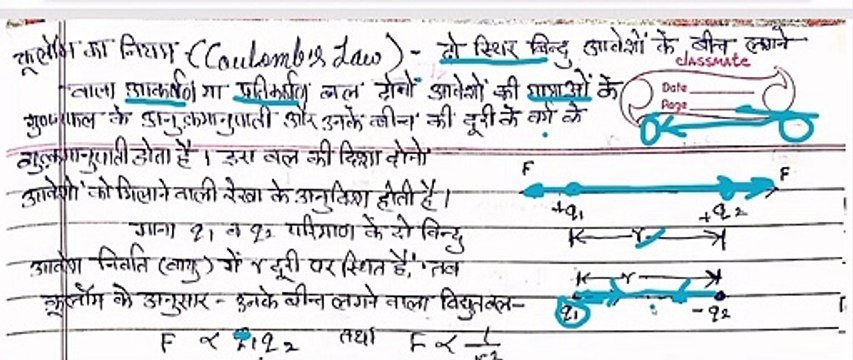 कूलॉम का नियम (Coulomb's Law) - दो स्थिर बिन्दु आवेशों के बीच लगने
classmate
वाला आकर्षण या प्रतिकर्षण बल दोनों आवेशों की मात्राओं के
Date
Page
गुणनफल के अनुक्रमानुपाती और उनके बीच की दूरी के वर्ग के
व्युत्क्रमानुपाती होता है। इस बल की दिशा दोनो
आवेशों को मिलाने वाली रेखा के अनुदिश होती है।
F F
+q1 +q2
r
माना q1 व q2 परिमाण के दो बिन्दु
आवेश निर्वात (वायु) में r दूरी पर स्थित हैं, तब
r
कूलॉम के अनुसार - उनके बीच लगने वाला विद्युत बल-
q1 -q2
F ∝ q1q2 तथा F ∝ 1/r2